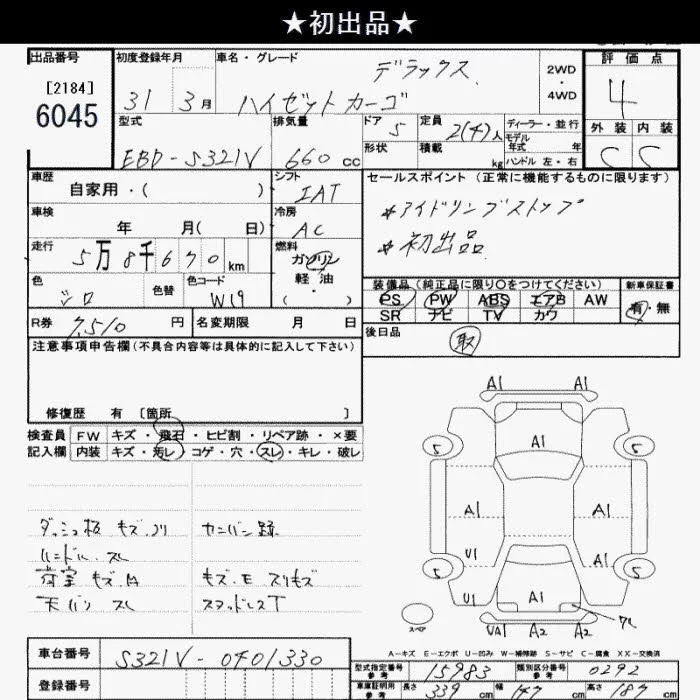 ★初出品★
出品番号
[2184]
6045
初度登録年月
31年3月
車名・グレード
デラックス
ハイゼットカーゴ
2WD
・
4WD
評価点
4
外装 内装
C C
型式
EBD-S321V
排気量
660cc
ドア 5
形状
定員 2(4)人
積載 kg
ディーラー・並行
モデル
年式 年
ハンドル 左・右
車歴
自家用・( )
シフト
IAT
車検
年 月( 日)
冷房
AC
走行
5万8千670km
燃料
ガソリン
・
軽油
( )
色
シロ
色替
色コード
W19
セールスポイント (正常に機能するものに限ります)
*アイドリングストップ
*初出品
装備品 (純正品に限り○をつけてください)
PS PW ABS エアB AW
SR ナビ TV カワ
新車保証書
有・無
R券 7,510円
名変期限 月 日
後日品
取
注意事項申告欄(不具合内容等は具体的に記入して下さい)
修復歴 有 [箇所 ]
検査員
記入欄
FW キズ・飛石・ヒビ割・リペア跡・×要
内装 キズ・汚レ・コゲ・穴・スレ・キレ・破レ
ダッシュ板 キズ.ノリ カンバン跡
ハンドル.スレ
荷室 キズ.A キズ.E スリキズ
天バリ スレ スタッドレスT
A1 A1
5 A1 5
A1 A1
U1 A1
5 5
U1 A1
スペア
UA1 A2 A2
A-キズ E-エクボ U-凹み W-補修跡 S-サビ C-腐食 XX-交換済
車台番号 S321V-0401330
登録番号
型式指定番号
参考
15983
類別区分番号
参考
0292
車庫証明用
参考
長さ 339cm 幅 147cm 高さ 187cm